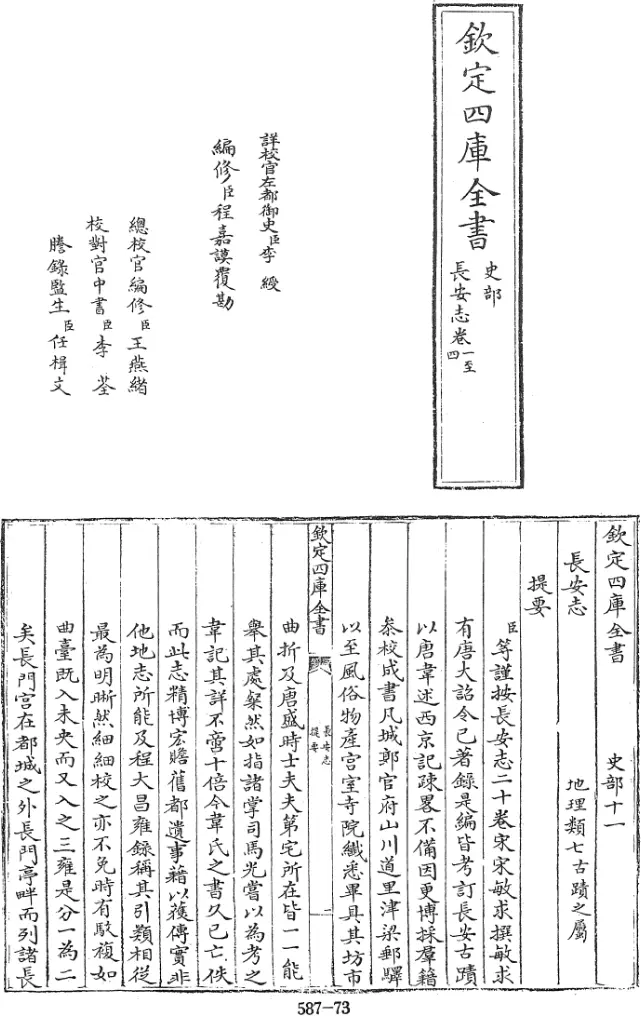 欽定四庫全書
史部
長安志卷一至四
詳校官左都御史臣李綬
編修臣程嘉謨覆勘
總校官編修臣王燕緒
校對官中書臣李荃
謄錄監生臣任楫文
欽定四庫全書 史部十一
長安志 地理類七古蹟之屬
提要
臣等謹按長安志二十卷宋宋敏求撰敏求
有唐大詔令已著錄是編皆考訂長安古蹟
以唐韋述西京記疎畧不備因更博採羣籍
叅校成書凡城郭官府山川道里津梁郵驛
以至風俗物產宫室寺院纖悉畢具其坊市
欽定四庫全書
長安志
提要
一
曲折及唐盛時士大夫第宅所在皆一一能
舉其處粲然如指諸掌司馬光嘗以為考之
韋記其詳不啻十倍今韋氏之書久已亡佚
而此志精博宏贍舊都遺事藉以獲傳實非
他地志所能及程大昌雍錄稱其引類相從
最為明晰然細細校之亦不免時有駁複如
曲臺既入未央而又入之三雍是分一為二
矣長門宫在都城之外長門亭畔而列諸長
587-73